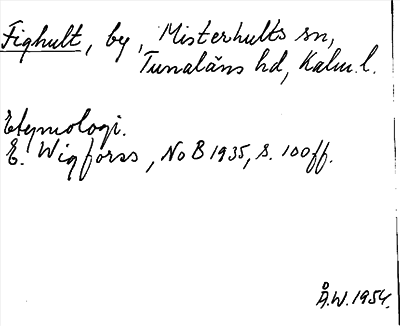 Fighult, by, Misterhults sn,
Tunaläns hd, Kalm. l.
Etymologi.
E. Wigforss, NoB 1935, s. 100 ff.
Å.W. 1954.